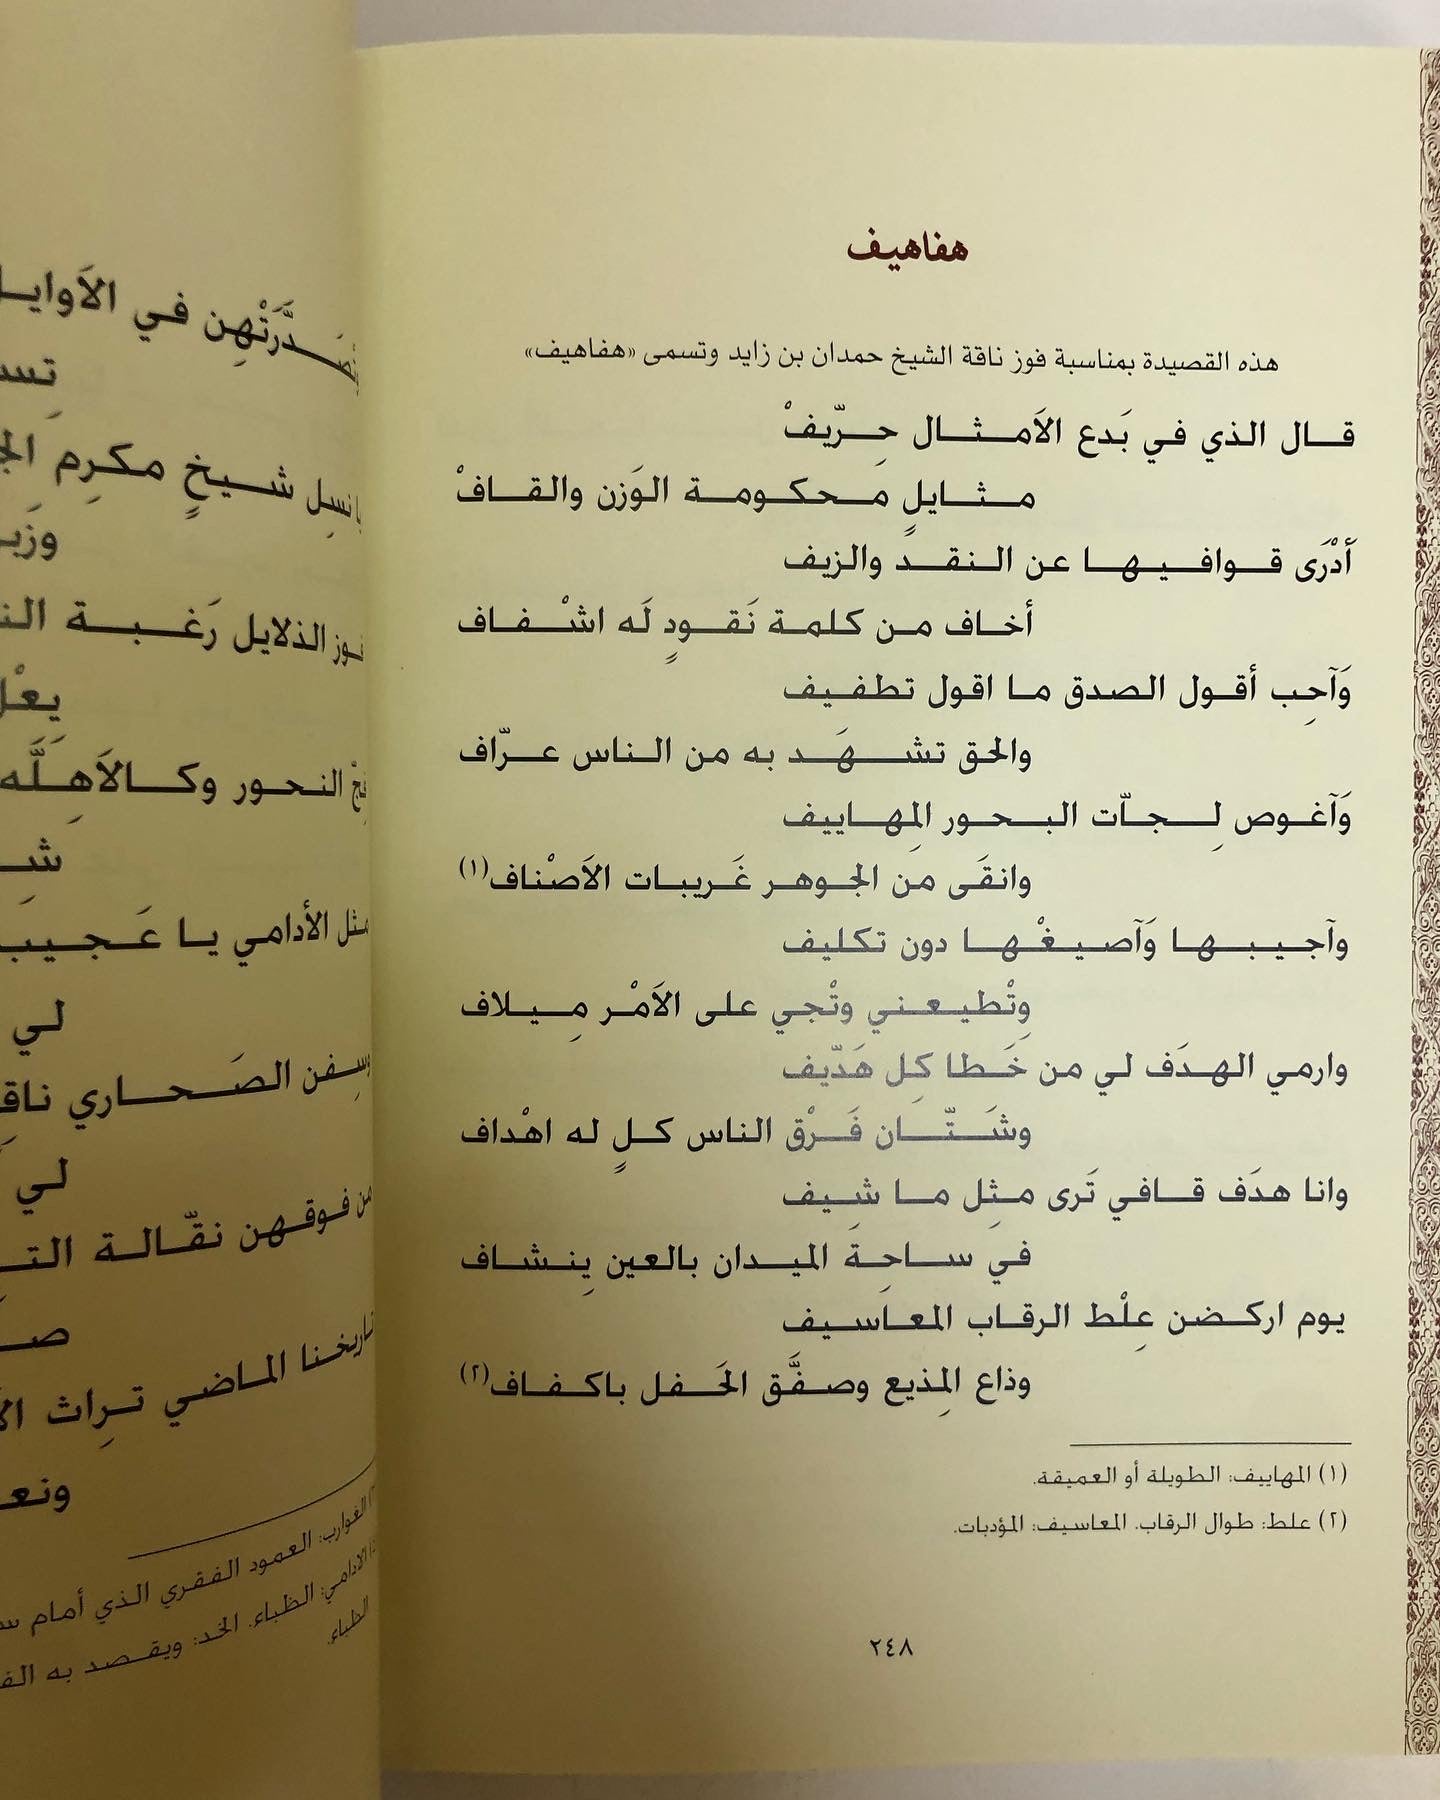 هفاهيف
هذه القصيدة بمناسبة فوز ناقة الشيخ حمدان بن زايد وتسمى «هفاهيف»
قال الذي في بَدع الاَمثال حِرّيفْ
مثايلٍ محكومة الوَزن والقافْ
أَدْرَى قوافيها عن النقد والزيف
أخاف من كلمة نَقودٍ لَه اشْفاف
وَآحِب أقول الصدق ما اقول تطفيف
والحق تشهَد به من الناس عرّاف
وَآغوص لِجاّت البحور المِهاييف
وانقَى من الجوهر غَريبات الاَصْناف(١)
وآجيبها وَآصيغْها دون تكليف
وِتْطيعني وتْجي على الاَمْر مِيلاف
وارمي الهدَف لي من خَطا كِل هَدّيف
وشَتّان فَرْق الناس كلٍ له اهْداف
وانا هدَف قافي تَرى مثِل ما شِيف
في ساحِة الميدان بالعين يِنشاف
يوم اركضن عِلْط الرقاب المعاسيف
وذاع المِذيع وصفَّق الحَفل باكفاف(٢)
(١) المهاييف: الطويلة أو العميقة.
(٢) علط: طوال الرقاب. المعاسيف: المؤدبات.
٢٤٨
صَدَّرَتْهِن في الاَوايل
يا نسِل شيخٍ مكرِم
فوز الذلايل رَغبة
النحور وكالاَهِلَّه
مثل الأدامي يا عَجيب
لي
وسِفن الصَحاري
لي
من فوقهن نقّالة
تاريخنا الماضي تراث
الغوارب: العمود الفقري الذي أمام
الادامي: الظباء. الخد: ويقصد به
الظباء.